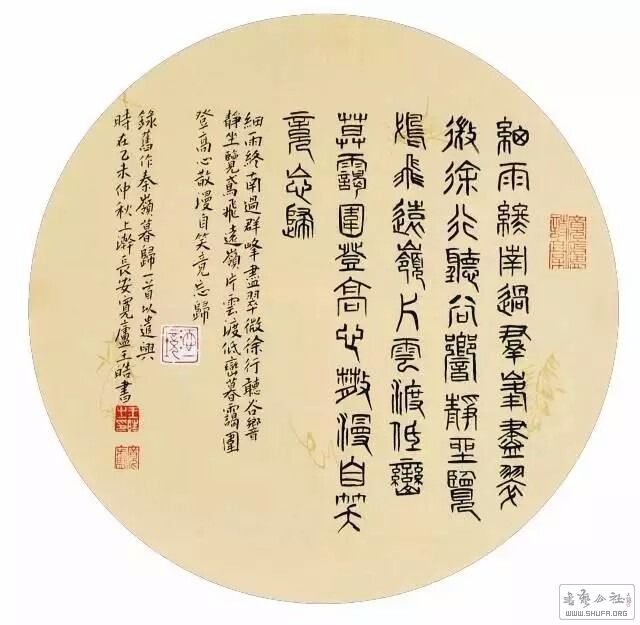 細雨終南過羣峯盡翠
微徐行聽谷響靜坐覽
鳶飛遠嶺片雲渡低巒
暮靄圍登高心散漫自笑
竟忘歸
細雨終南過群峰盡翠微徐行聽谷響
靜坐覽鳶飛遠嶺片雲渡低巒暮靄圍
登高心散漫自笑竟忘歸
錄舊作秦嶺暮歸一首以遣興
時在乙未仲秋上澣長安寬廬王晧書
書藝公社
WWW.SHUFA.ORG